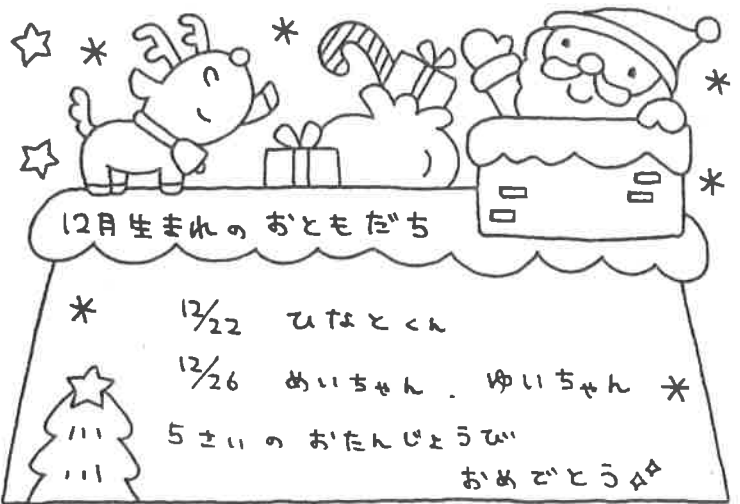 12月生まれのおともだち
12/22 ひなとくん
12/26 めいちゃん、ゆいちゃん
5さいのおたんじょうび
おめでとう